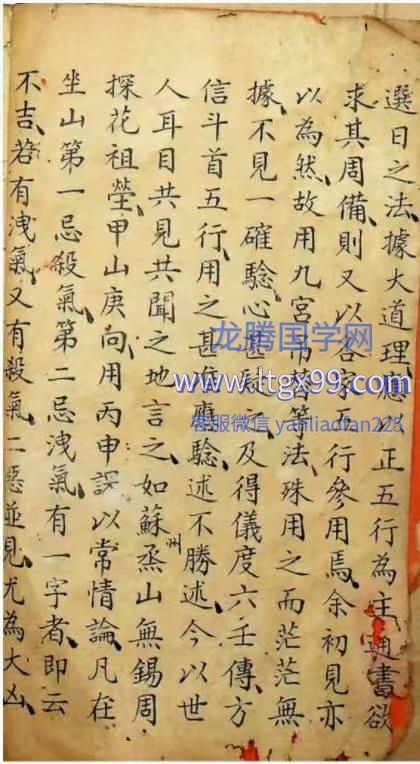 選日之法據大道理應以正五行為主通書欲
求其周備則又以各家五行參用焉余初見亦
以為然故用九宮吊替等法殊用之而茫茫無
據不見一確驗心甚疑之及得儀度六壬傳方
信斗首五行用之甚準應驗述不勝述今以世
人耳目共見共聞之地言之如蘇州烝山無錫周
探花祖塋甲山庚向用丙申課以常情論凡在
坐山第一忌殺氣第二忌洩氣有一字者即云
不吉若有洩氣又有殺氣二惡並見尤為大凶
龙腾国学网
www.ltgx99.com
客服微信 yanliaofan225